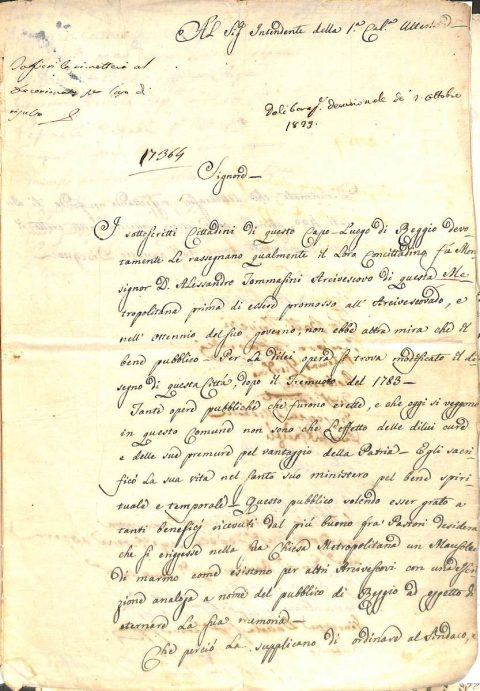 Al Sig.r Intendente della 1.a Cal.a Ulteriore
Deliberaz.e decurionale de' 2 Ottobre
1829.
17364
Signore
I sottoscritti Cittadini di questo Capo-Luogo di Reggio devo-
tamente Le rassegnano qualmente il Loro Concittadino fù Mon-
signor D. Alessandro Tommasini Arcivescovo di questa Me-
tropolitana prima di essere promosso all' Arcivescovado, e
nell' ottennio del suo governo, non ebbe altra mira che il
bene pubblico - Per La dilei opera si trova modificato il di-
segno di questa Città, dopo il Tremuoto del 1783 -
Tante opere pubbliche che furono erette, e che oggi si veggono
in questo Comune non sono che l'effetto delle dilui cure
e delle sue premure pel vantaggio della Patria - Egli sacri-
ficò La sua vita nel santo suo ministero pel bene spiri-
tuale e temporale - Questo pubblico volendo esser grato a
tanti beneficj ricevuti dal più buono fra' Pastori desidera
che si eriggesse nella Chiesa Metropolitana un Mausoleo
di marmo come esistono per altri Arcivescovi con una Iscri-
zione analoga a nome del pubblico di Reggio ad oggetto di
eternare La sua memoria -
Che perciò La supplicano di ordinare al Sindaco, e